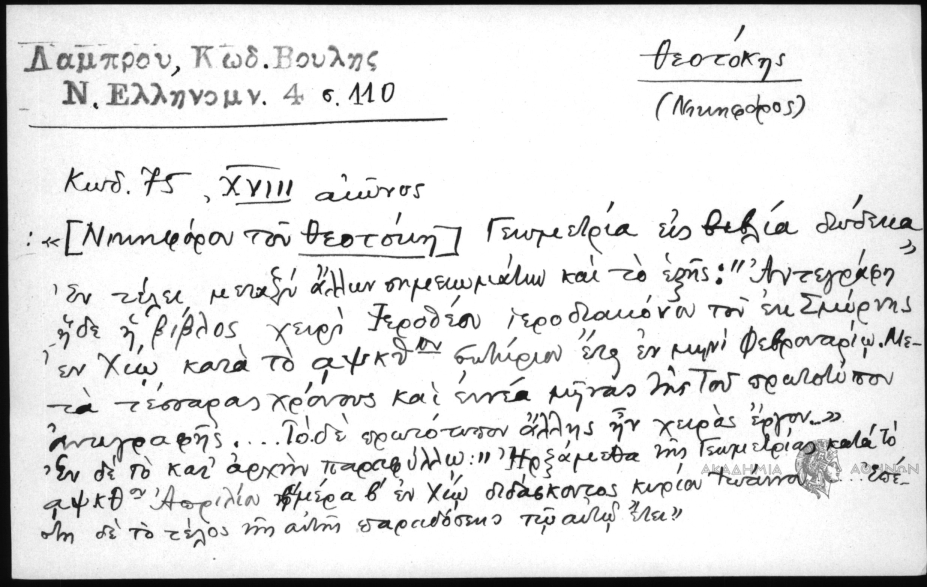 Λαμπρου, Κωδ. Βουλης
Ν. Ελληνομν. 4 σ. 110
Θεοτόκης
(Νικηφόρος)
Κωδ. 75, XVIII αἰῶνος
: «[Νικηφόρου τοῦ Θεοτόκη] Γεωμετρία εἰς βιβλία δώδεκα»
Ἐν τέλει μεταξὺ ἄλλων σημειωμάτων καὶ τὸ ἑξῆς: "Ἀντεγράφη
ἥδε ἡ βίβλος χειρὶ Ἱεροθέου ἱεροδιακόνου τοῦ ἐκ Σμύρνης
ἐν Χίῳ κατὰ τὸ αψκθον σωτήριον ἔτος ἐν μηνὶ Φεβρουαρίῳ. Με-
τὰ τέσσαρας χρόνους καὶ ἐννέα μῆνας τῆς τοῦ πρωτοτύπου
ἀντιγραφῆς.... Τὸ δὲ πρωτότυπον ἄλλης ἦν χειρὸς ἔργον..»
Ἐν δὲ τὸ κατ' ἀρχὴν παραφύλλῳ: "Ἠρξάμεθα τῆς Γεωμετρίας κατὰ τὸ
αψκθον Ἀπριλίου ἡμέρᾳ β' ἐν Χίῳ διδάσκοντος κυρίου ... ἐπέ-
δὲ τὸ τέλος τῆς αὐτῆς παραδόσεως τῷ αὐτῷ ἔτει"
ΑΚΑΔΗΜΙΑ ΑΘΗΝΩΝ